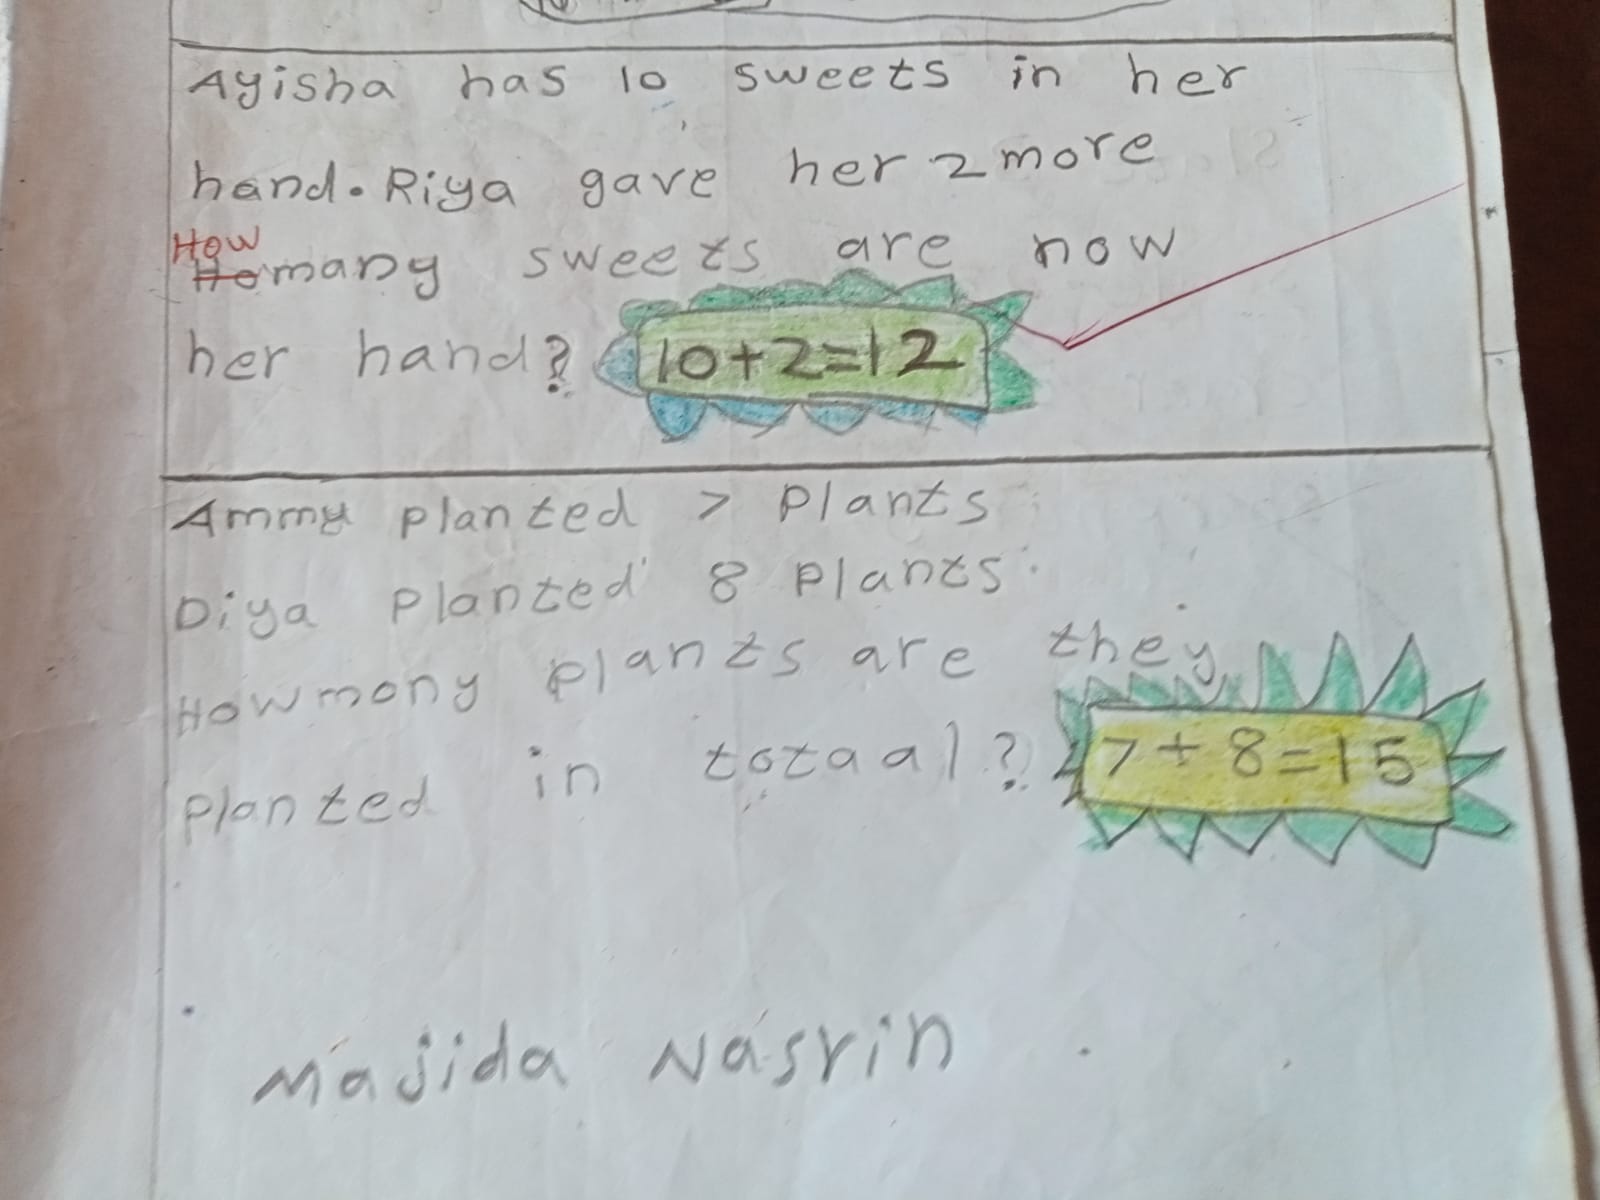 Ayisha has 10 sweets in her
hand. Riya gave her 2 more
How
Homany sweets are now
her hand?
10+2=12
Ammy planted 7 plants
Diya planted 8 plants.
Howmony plants are they
planted in totaal?
7+8=15
Majida Nasrin